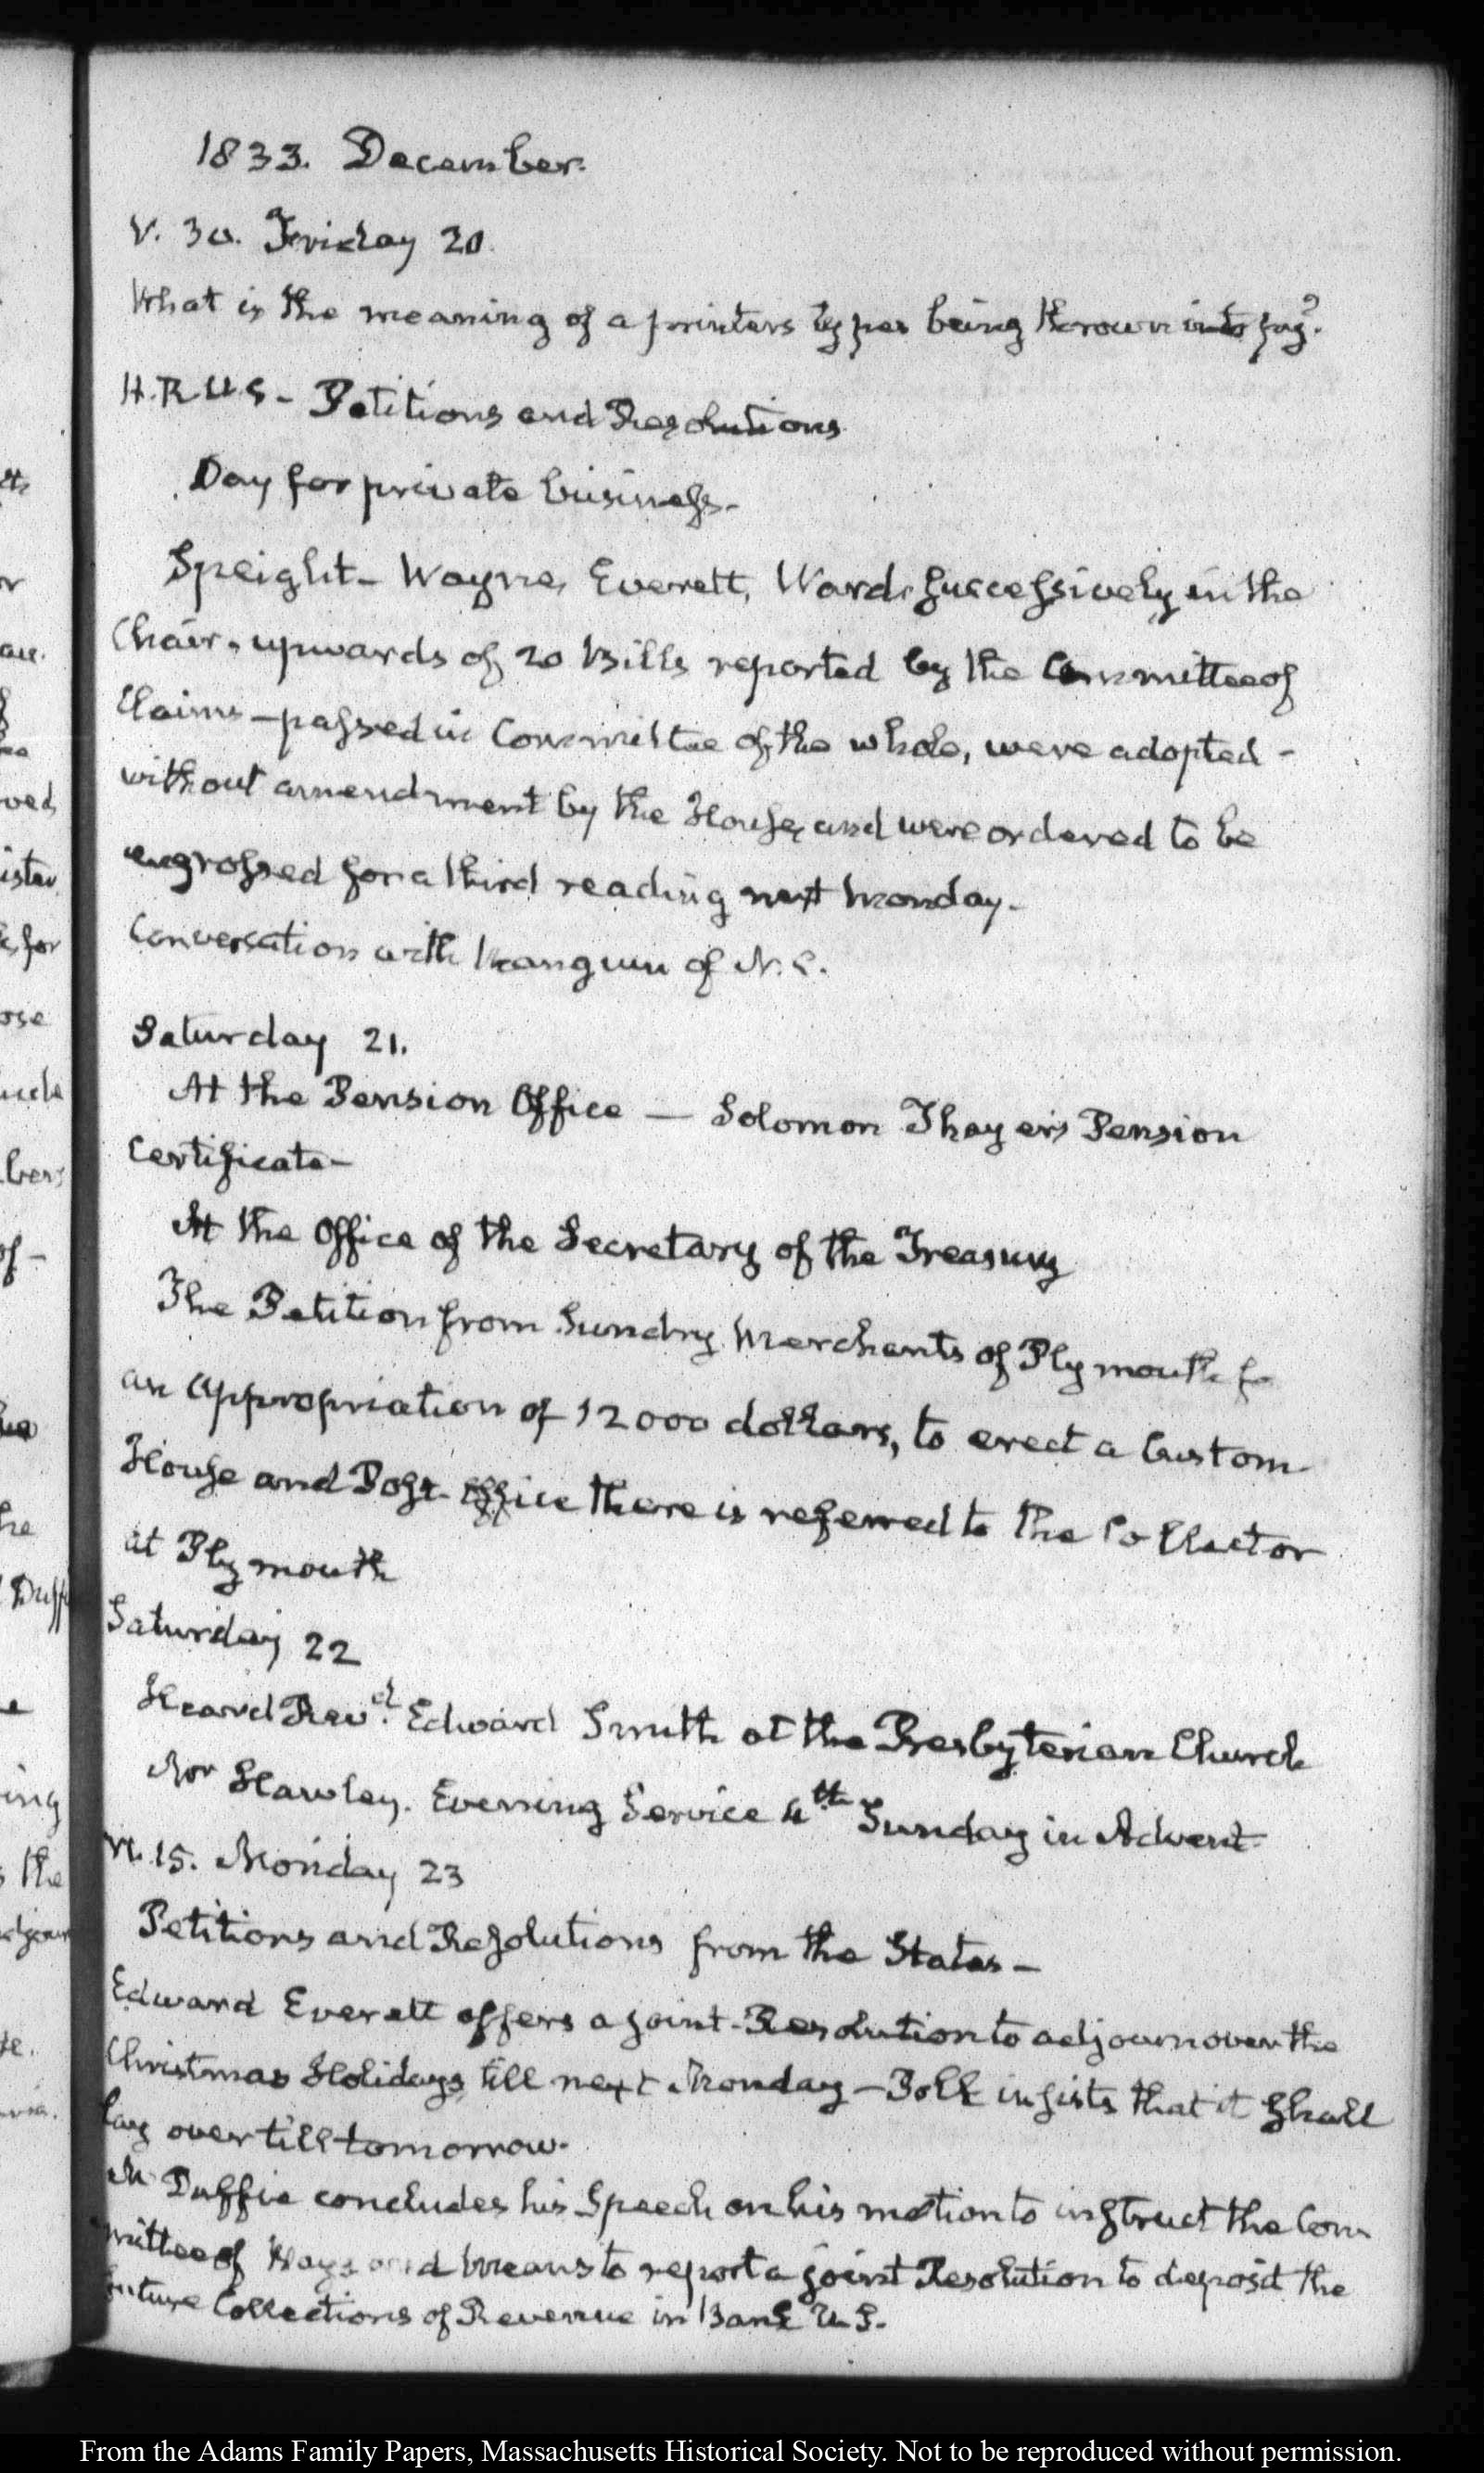 1833. December.
V. 30. Friday 20.
What is the meaning of a printers types being thrown into pag?
H. R. U S - Petitions and Resolutions
Day for private business -
Speight - Wayne, Everett, Ward successively in the
Chair, upwards of 20 Bills reported by the Committee of
Claims - passed in Committee of the whole, were adopted -
without amendment by the House, and were ordered to be
engrossed for a third reading next Monday.
Conversation with Mangum of N. C.
Saturday 21.
At the Pension Office — Solomon Thayer's Pension
Certificate -
At the Office of the Secretary of the Treasury
The Petition from Sundry Merchants of Plymouth fo
an appropriation of 12000 dollars, to erect a Custom
House and Post-Office there is referred to the Collector
at Plymouth
Saturday 22
Heard Revd. Edward Smith at the Presbyterian Church
Hawley. Evening Service 4th Sunday in Advent
15. Monday 23
Petitions and Resolutions from the States -
Edward Everett offers a joint-Resolution to adjourn over the
Christmas Holidays till next Monday - Polk insists that it shall
lay over till tomorrow.
Mc Duffie concludes his Speech on his motion to instruct the Com
mittee of Ways and Means to report a joint Resolution to deposit the
future Collections of Revenue in Bank U. S.
From the Adams Family Papers, Massachusetts Historical Society. Not to be reproduced without permission.